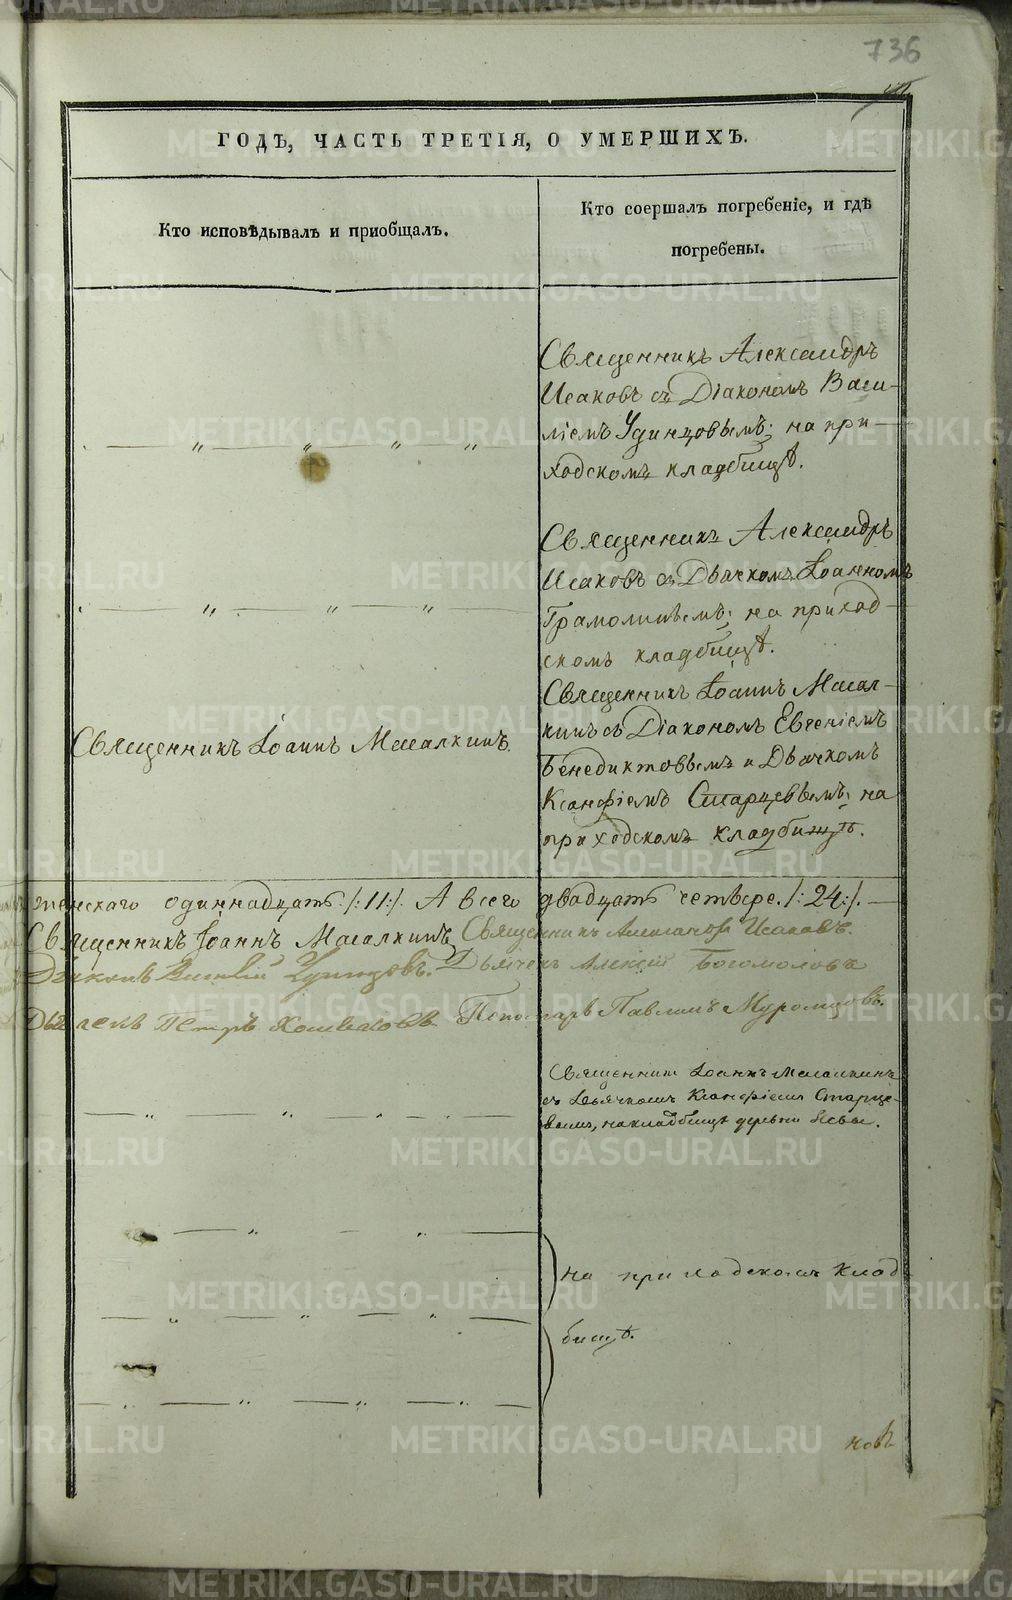 736
ГОДЪ, ЧАСТЬ ТРЕТІЯ, О УМЕРШИХЪ.
Кто исповѣдывалъ и пріобщалъ.
Кто соершалъ погребеніе, и гдѣ
погребены.
Священникъ Александръ
Исаковъ съ Діакономъ Васи-
ліемъ Удинцовымъ; на при-
ходскомъ кладбищѣ.
Священникъ Александръ
Исаковъ съ Дьячкомъ Іоанномъ
на приход-
скомъ кладбищѣ.
Священникъ Іоаннъ Масалкинъ.
Священникъ Іоаннъ Масал-
кинъ съ Діакономъ Евгеніемъ
Бенедиктовымъ и Дьячкомъ
Ксанфіемъ Старцевымъ; на
приходскомъ кладбищѣ.
женскаго одиннадцать /:11:/. А всего двадцать четыре. /:24:/.
Священникъ Іоаннъ Масалкинъ Священникъ Александръ Исаковъ.
Діаконъ Василій Удинцовъ. Дьячекъ Алексій Богомоловъ
Дьячекъ Петръ Пономарь Павлинъ Муромцовъ.
Священникъ Іоаннъ Масалкинъ
съ Дьячкомъ Ксанфіемъ Старце-
вымъ, на кладбищѣ деревни
на приходскомъ клад-
бищѣ.
METRIKI.GASO-URAL.RU